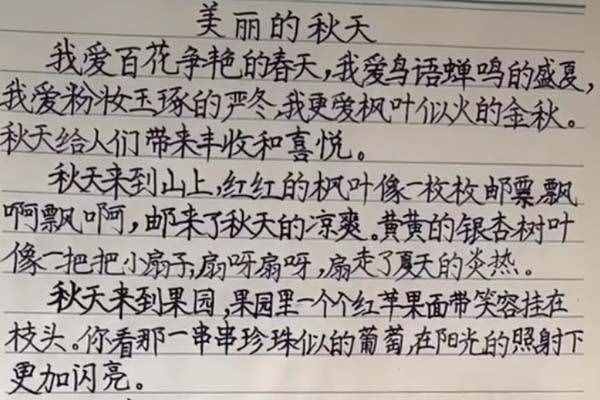 美丽的秋天
我爱百花争艳的春天,我爱鸟语蝉鸣的盛夏,
我爱粉妆玉琢的严冬,我更爱枫叶似火的金秋。
秋天给人们带来丰收和喜悦。
秋天来到山上,红红的枫叶像一枚枚邮票,飘
啊飘啊,邮来了秋天的凉爽。黄黄的银杏树叶
像一把把小扇子,扇呀扇呀,扇走了夏天的炎热。
秋天来到果园,果园里一个个红苹果面带笑容挂在
枝头。你看那一串串珍珠似的葡萄,在阳光的照射下
更加闪亮。